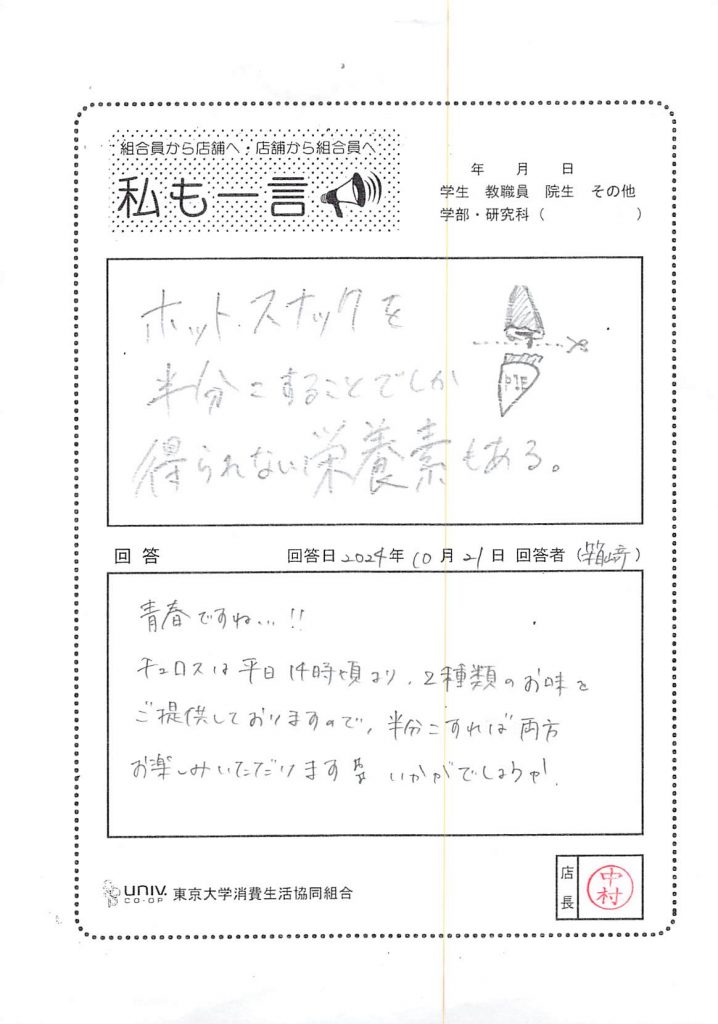 組合員から店舗へ・店舗から組合員へ
私も一言
年 月 日
学生 教職員 院生 その他
学部・研究科( )
ホットスナックを
半分こすることでしか
得られない栄養素もある。
PIE
回答 回答日2024年10月21日 回答者(箱崎)
青春ですね…!!
チュロスは平日14時頃より、2種類のお味を
ご提供しておりますので、半分こすれば両方
お楽しみいただけます いかがでしょうか!
UNIV. CO-OP 東京大学消費生活協同組合
店長 中村